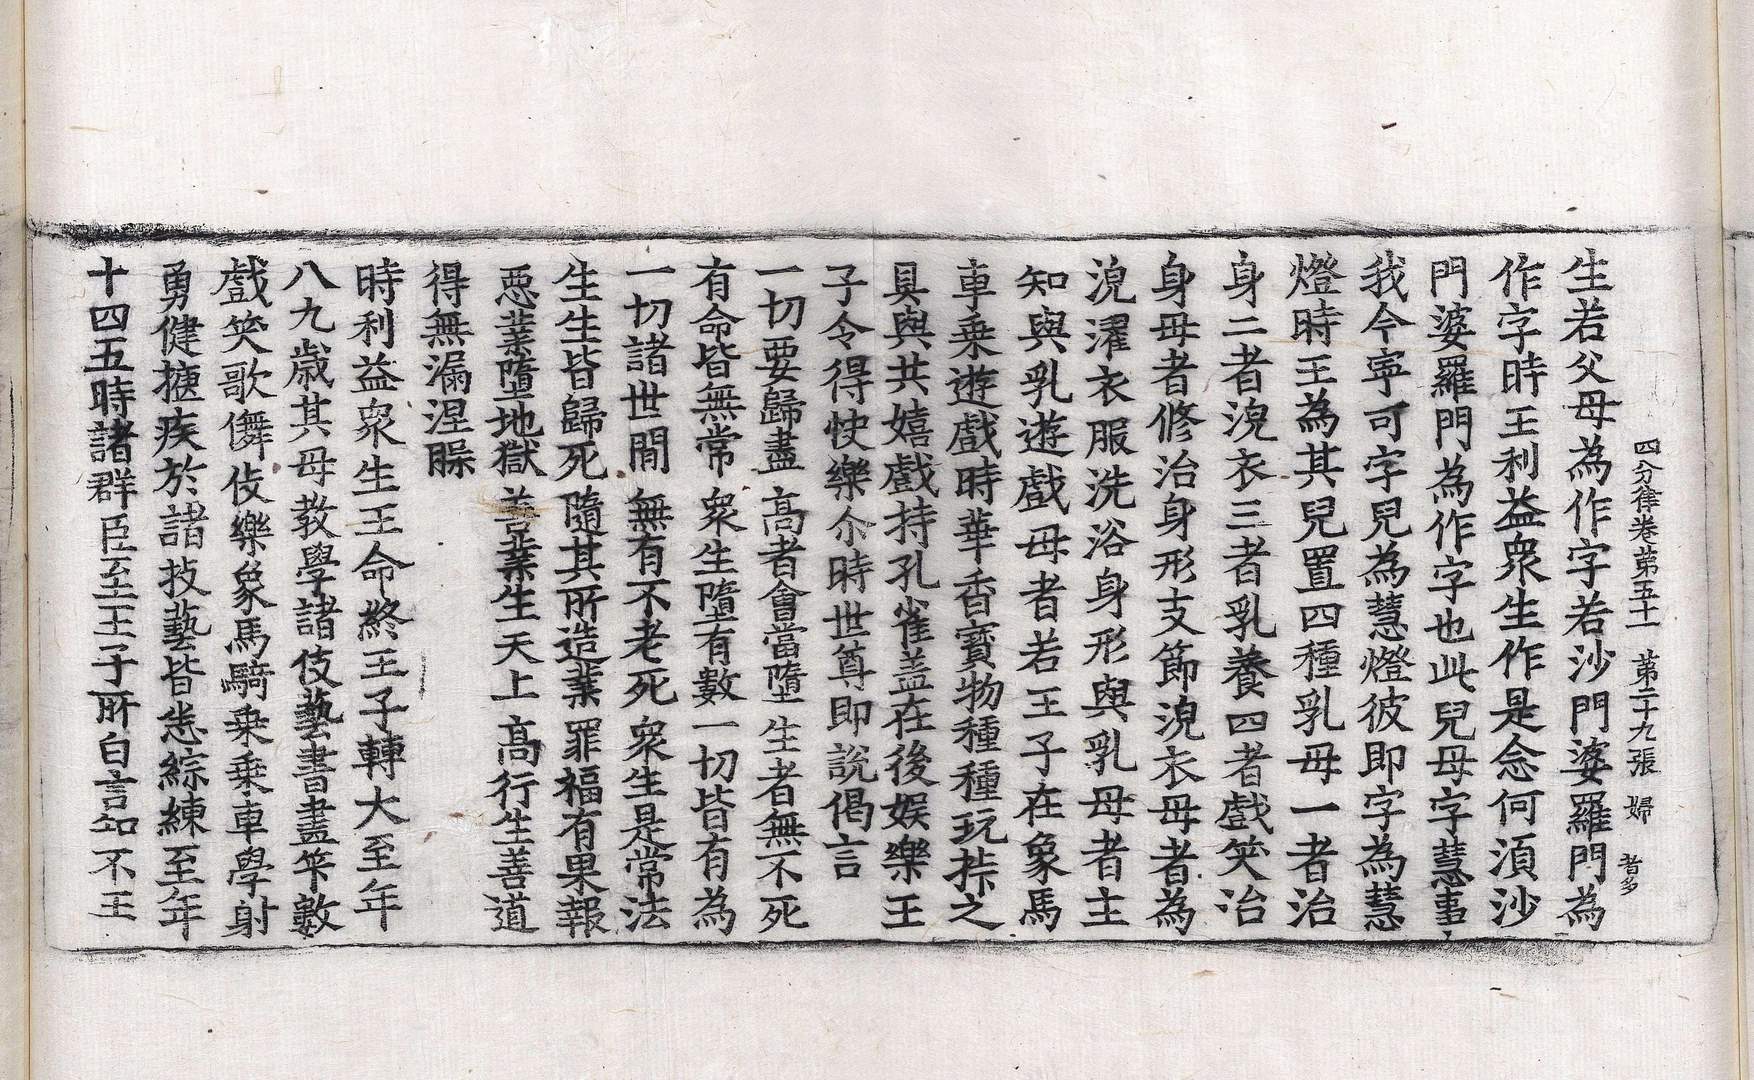 四分律卷第五十一 第二十九張 婦 者多
生若父母為作字若沙門婆羅門為
作字時王利益衆生作是念何湏沙
門婆羅門為作字也此兒母字慧事
我今寧可字兒為慧燈彼即字為慧
燈時王為其兒置四種乳母一者治
身二者浣衣三者乳養四者戲笑治
身母者修治身形支節浣衣母者為
浣濯衣服洗浴身形與乳母者主
知與乳遊戲母者若王子在象馬
車乗遊戲時華香寶物種種玩弄之
具與共嬉戲持孔雀盖在後娛樂王
子令得快樂尒時世尊即說偈言
一切要歸盡 高者會當墮 生者無不死
有命皆無常 衆生墮有數 一切皆有為
一切諸世間 無有不老死 衆生是常法
生生皆歸死 隨其所造業 罪福有果報
惡業墮地獄 善業生天上 高行生善道
得無漏涅槃
時利益衆生王命終王子轉大至年
八九歲其母教學諸伎藝書畫筭數
戲笑歌儛伎樂象馬騎乗乗車學射
勇健捷疾於諸技藝皆悉綜練至年
十四五時諸群臣至王子所白言知不王